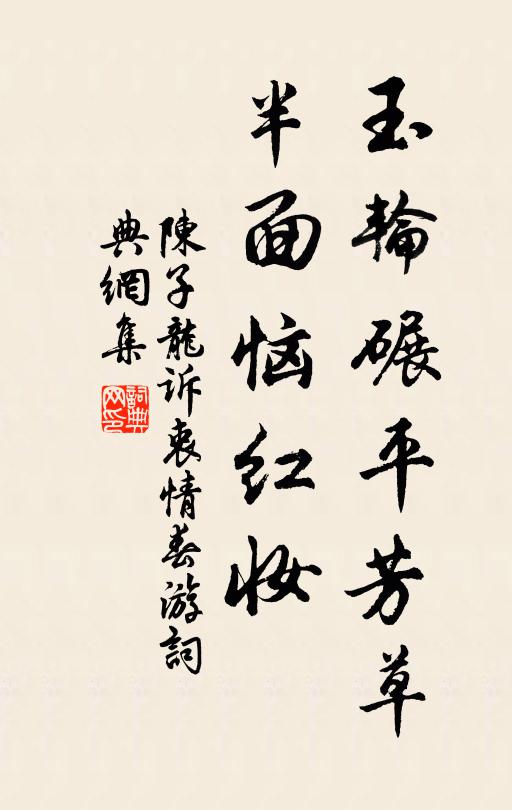 玉輪碾平芳草
半面恼红妆
陳子龍訴衷情春游詞
典網集
詞典
网印